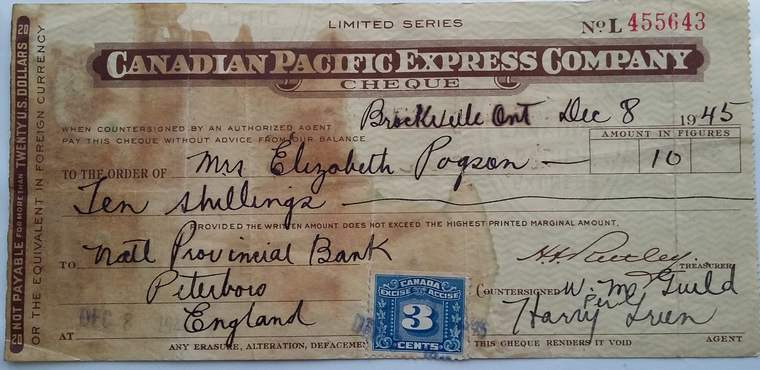 LIMITED SERIES
No L 455643
CANADIAN PACIFIC EXPRESS COMPANY
CHEQUE
Brockville Ont Dec 8 1945
WHEN COUNTERSIGNED BY AN AUTHORIZED AGENT
PAY THIS CHEQUE WITHOUT ADVICE FROM OUR BALANCE
AMOUNT IN FIGURES
10
TO THE ORDER OF Mrs Elizabeth Pogson
Ten shillings
PROVIDED THE WRITTEN AMOUNT DOES NOT EXCEED THE HIGHEST PRINTED MARGINAL AMOUNT.
TO Natl Provincial Bank
TREASURER
Peterboro
COUNTERSIGNED W. Mc Guild
England
Per
Harry
DEC 8
AT
AGENT
ANY ERASURE, ALTERATION, DEFACEMENT
THIS CHEQUE RENDERS IT VOID
CANADA
EXCISE ACCISE
3
CENTS
20 NOT PAYABLE FOR MORE THAN TWENTY U.S. DOLLARS 20
OR THE EQUIVALENT IN FOREIGN CURRENCY